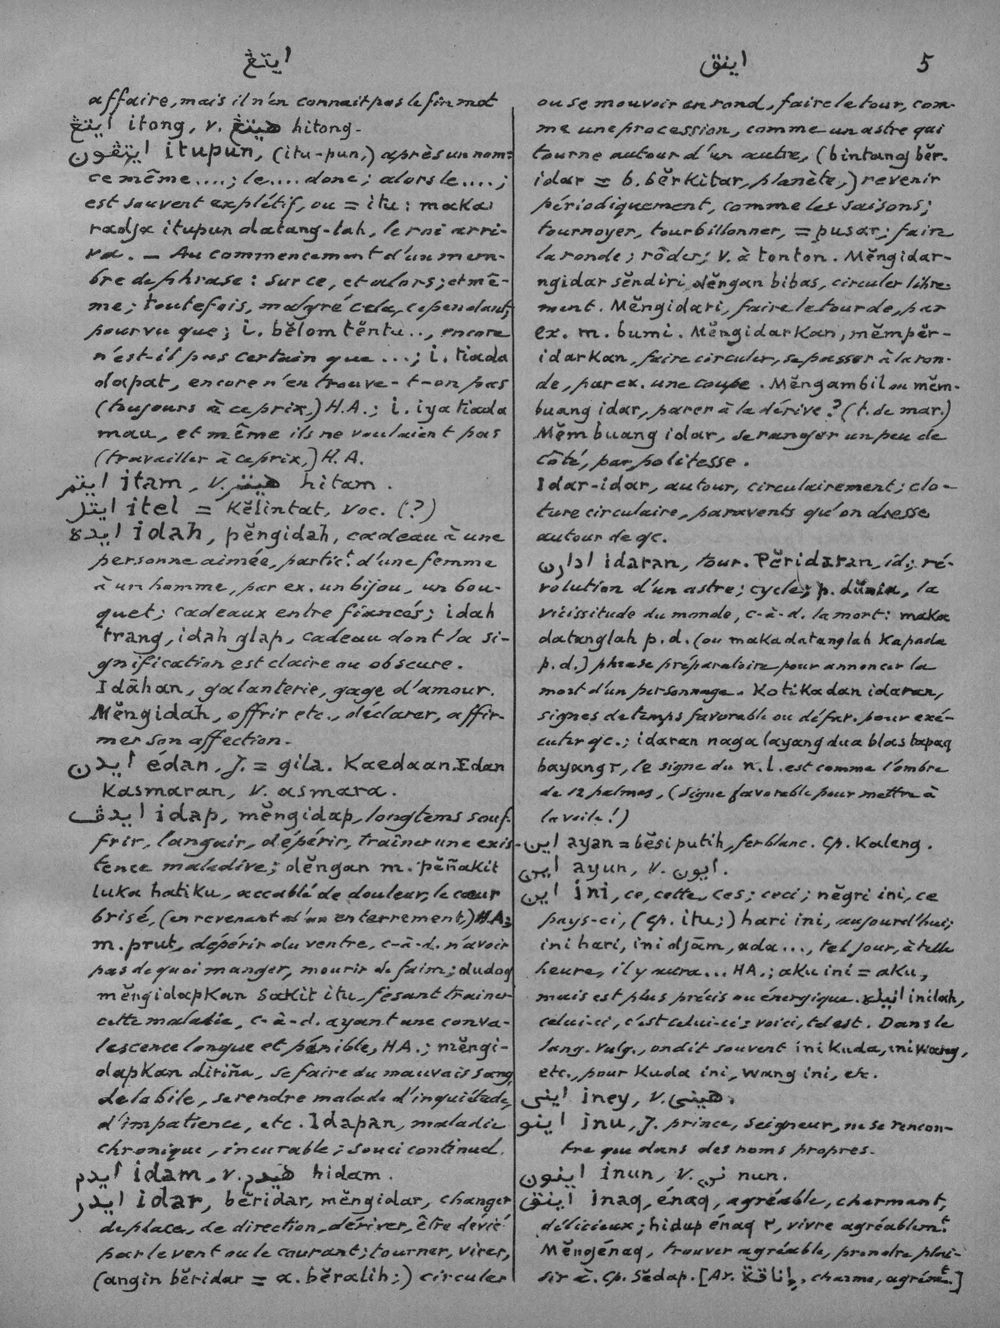 ايتڠ
اينق
5
affaire, mais il n'en connait pas le fin mot
ايتڠ itong, v. هيتڠ hitong.
ايتڤون itupun, (itu-pun,) après un nom:
ce même....; le.... donc; alors le....;
est souvent explétif, ou = itu: maka
radja itupun datang-lah, le roi arri-
va. — Au commencement d'un mem-
bre de phrase: sur ce, et alors; et mê-
me; toutefois, malgré cela, cependant;
pourvu que; i. bĕlom tĕntu.., encore
n'est-il pas certain que ...; i. tiada
dapat, encore n'en trouve-t-on pas
(toujours à ce prix,) H.A.; i. iya tiada
mau, et même ils ne voulaient pas
(travailler à ce prix,) H.A.
ايتم itam, v. هيتم hitam.
ايتل itel = Kĕlintat, voc. (?)
ايده idah, pĕngidah, cadeau à une
personne aimée, partict. d'une femme
à un homme, par ex. un bijou, un bou-
quet; cadeaux entre fiancés; idah
trang, idah glap, cadeau dont la si-
gnification est claire ou obscure.
Idāhan, galanterie, gage d'amour.
Mĕngidah, offrir etc., déclarer, affir-
mer son affection.
ايدن édan, J. = gila. Kaedaan. Edan
Kasmaran, v. asmara.
ايدڤ idap, mĕngidap, longtems souf-
frir, languir, dépérir, traîner une exis-
tence maladive; dĕngan m. pĕñakit
luka hatiku, accablé de douleur, le cœur
brisé, (en revenant d'un enterrement,) H.A.;
m. prut, dépérir du ventre, c-à-d. n'avoir
pas de quoi manger, mourir de faim; dudoq
mĕngidapkan sakit itu, fesant trainer
cette maladie, c-à-d. ayant une conva-
lescence longue et pénible, HA.; mĕngi-
dapkan diriña, se faire du mauvais sang,
de la bile, se rendre malade d'inquiétude,
d'impatience, etc. Idapan, maladie
chronique, incurable; souci continuel.
ايدم idam, v. هيدم hidam.
ايدر idar, bĕridar, mĕngidar, changer
de place, de direction, dériver, être dévié
par le vent ou le courant; tourner, virer,
(angin bĕridar = a. bĕralih;) circuler
ou se mouvoir en rond, faire le tour, com-
me une procession, comme un astre qui
tourne autour d'un autre, (bintang bĕr-
idar = b. bĕrkitar, planète,) revenir
périodiquement, comme les saisons;
tournoyer, tourbillonner, = pusar; faire
la ronde; rôder; v. à tonton. Mĕngidar-
ngidar sĕndiri dĕngan bibas, circuler libre-
ment. Mĕngidari, faire le tour de, par
ex. m. bumi. Mĕngidarkan, mĕmpĕr-
idarkan, faire circuler, se passer à la ron-
de, par ex. une coupe. Mĕngambil ou mĕm-
buang idar, parer à la dérive? (t. de mar.)
Mĕmbuang idar, se ranger un peu de
côté, par politesse.
Idar-idar, autour, circulairement; clo-
ture circulaire, paravents qu'on dresse
autour de qc.
ادارن idaran, tour. Pĕridaran, id; ré-
volution d'un astre; cycle; p. dunia, la
vicissitude du monde, c-à-d. la mort: maka
datanglah p.d. (ou maka datanglah kapada
p.d.) phrase préparatoire pour annoncer la
mort d'un personnage. Kotika dan idaran,
signes de temps favorable ou défav. pour exé-
cuter qc.; idaran naga layang dua blas tapaq
bayang r, le signe du n. l. est comme l'ombre
de 12 palmes, (signe favorable pour mettre à
la voile!)
اين ayan = bĕsi putih, fer blanc. Cp. Kaleng.
اين ayun, v. ايون.
اين ini, ce, cette, ces; ceci; nĕgri ini, ce
pays-ci, (cp. itu;) hari ini, aujourd'hui;
ini hari, ini djām, ada..., tel jour, à telle
heure, il y aura... HA.; aku ini = aku,
mais est plus précis ou énergique. اينيله inilah,
celui-ci, c'est celui-ci; voici, tel est. Dans le
lang. vulg., on dit souvent ini kuda, ini wang,
etc., pour kuda ini, wang ini, etc.
ايني iney, v. هيني.
اينو inu, J. prince, seigneur, ne se rencon-
tre que dans des noms propres.
اينون inun, v. نن nun.
اينق inaq, énaq, agréable, charmant,
délicieux; hidup énaq r, vivre agréablemt.
Mĕngénaq, trouver agréable, prendre plai-
sir à. Cp. Sĕdap. [Ar. إناقة, charme, agrémt.]